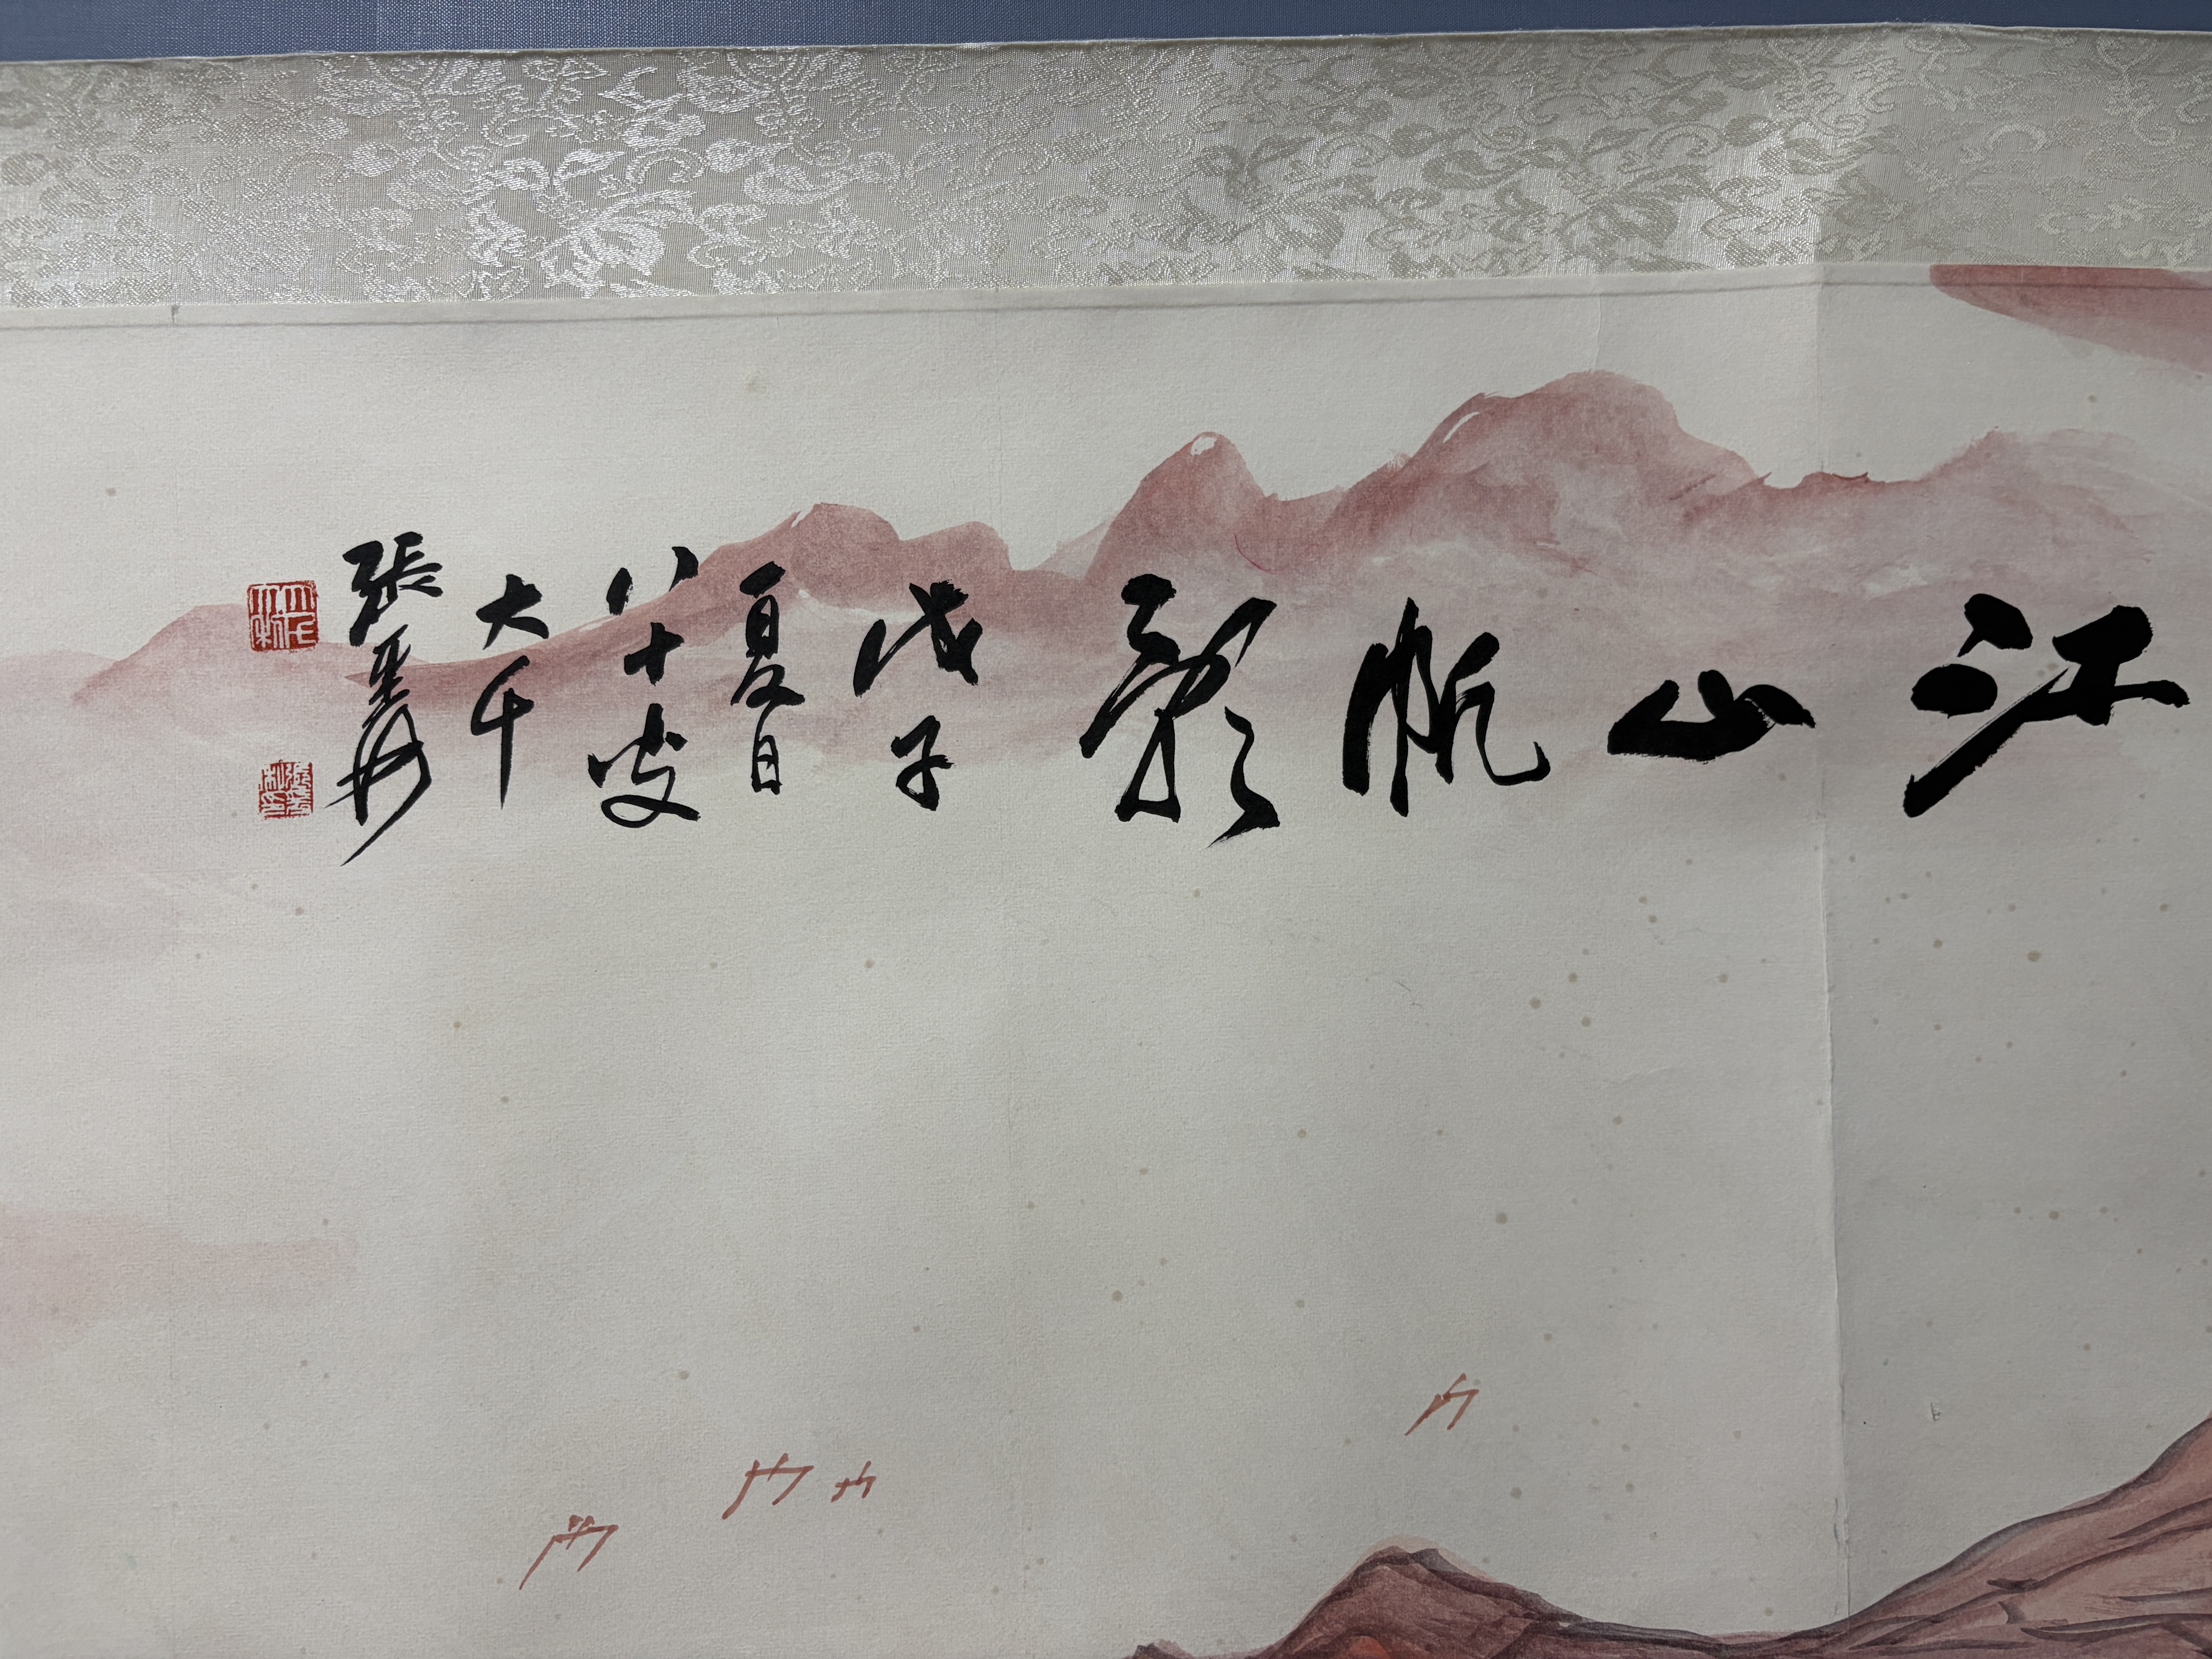 江山帆影
戊子
夏日
八十叟
大千
張